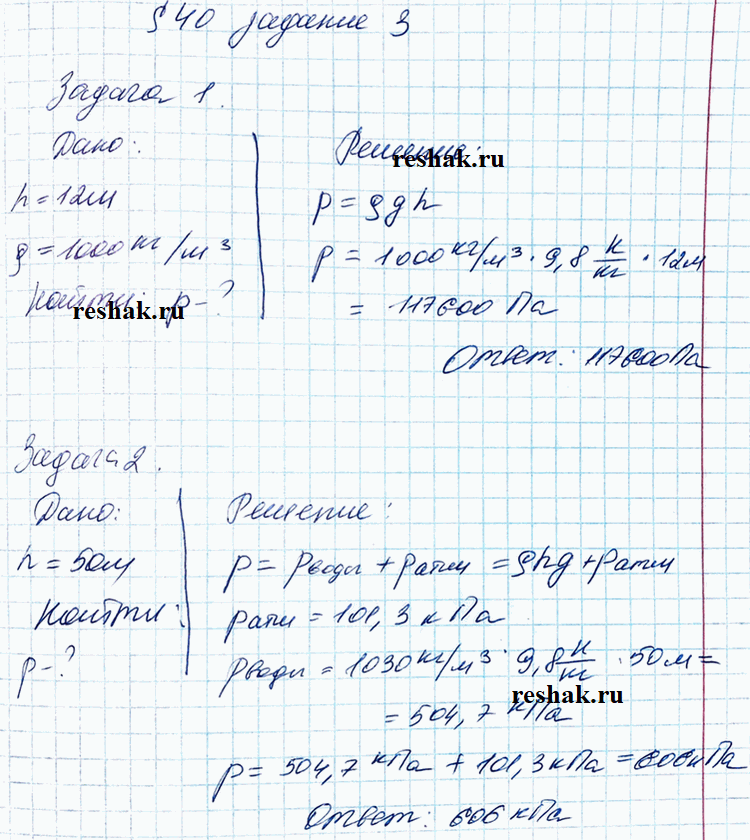 §40 задание 3
Задача 1.
Дано:
h = 12м
ρ = 1000 кг/м³
Найти: p - ?
reshak.ru
Решение:
reshak.ru
p = ρgh
p = 1000 кг/м³ · 9,8 н/кг · 12м
= 117600 Па
Ответ: 117600Па
Задача 2.
Дано:
h = 50м
Найти:
p - ?
Решение:
p = pводы + pатм = ρhg + pатм
pатм = 101,3 кПа
pводы = 1030 кг/м³ · 9,8 н/кг · 50м =
reshak.ru
= 504,7 кПа
p = 504,7 кПа + 101,3 кПа = 606кПа
Ответ: 606 кПа